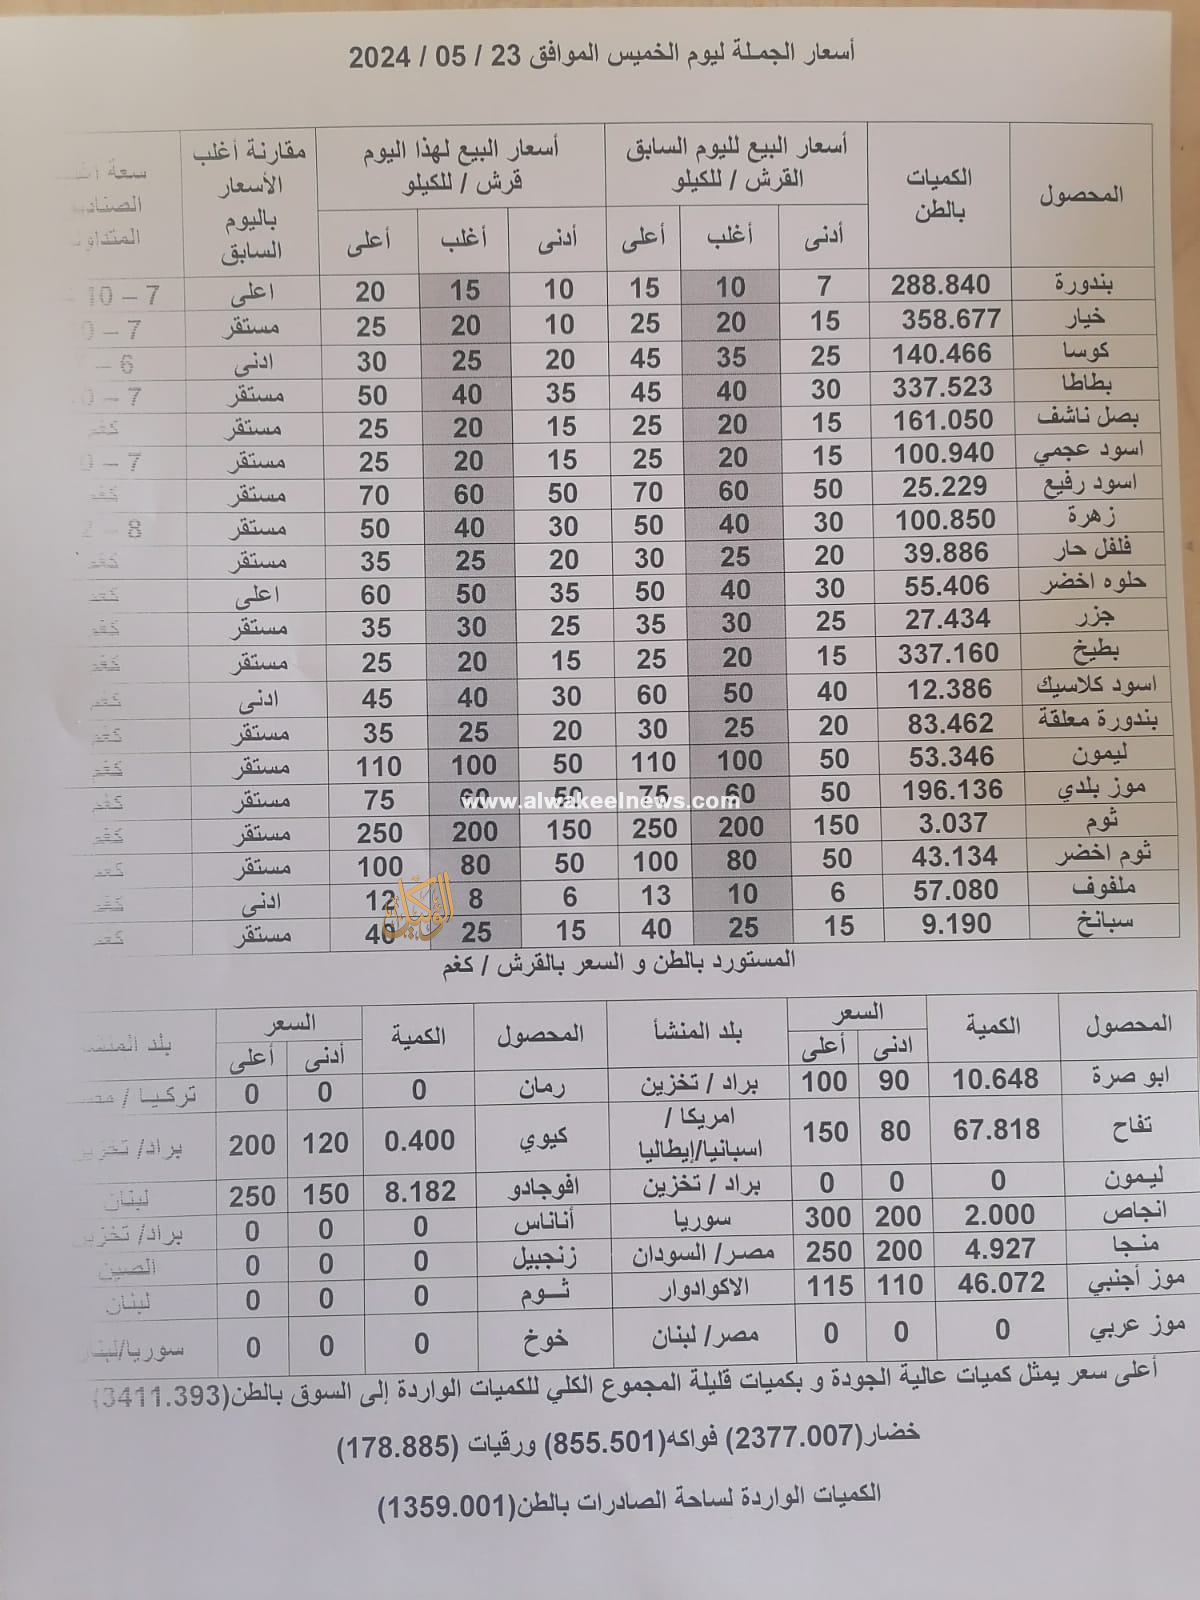 أسعار الجملة ليوم الخميس الموافق 23 / 05 / 2024
المحصول الكميات بالطن أسعار البيع لليوم السابق القرش / للكيلو أسعار البيع لهذا اليوم قرش / للكيلو مقارنة أغلب الأسعار باليوم السابق سعة
أدنى أغلب أعلى أدنى أغلب أعلى
بندورة 288.840 7 10 15 10 15 20 اعلى 7 – 10
خيار 358.677 15 20 25 10 20 25 مستقر 7 –
كوسا 140.466 25 35 45 20 25 30 ادنى 6 –
بطاطا 337.523 30 40 45 35 40 50 مستقر 7 –
بصل ناشف 161.050 15 20 25 15 20 25 مستقر كغم
اسود عجمي 100.940 15 20 25 15 20 25 مستقر 7 –
اسود رفيع 25.229 50 60 70 50 60 70 مستقر كغم
زهرة 100.850 30 40 50 30 40 50 مستقر 8 –
فلفل حار 39.886 20 25 30 20 25 35 مستقر كغم
حلوه اخضر 55.406 30 40 50 35 50 60 اعلى كغم
جزر 27.434 25 30 35 25 30 35 مستقر كغم
بطيخ 337.160 15 20 25 15 20 25 مستقر كغم
اسود كلاسيك 12.386 40 50 60 30 40 45 ادنى كغم
بندورة معلقة 83.462 20 25 30 20 25 35 مستقر كغم
ليمون 53.346 50 100 110 50 100 110 مستقر كغم
موز بلدي 196.136 50 60 75 50 60 75 مستقر كغم
www.alwakeelnews.com
ثوم 3.037 150 200 250 150 200 250 مستقر كغم
ثوم اخضر 43.134 50 80 100 50 80 100 مستقر كغم
ملفوف 57.080 6 10 13 6 8 12 ادنى كغم
الوكيل
سبانخ 9.190 15 25 40 15 25 40 مستقر كغم
المستورد بالطن و السعر بالقرش / كغم
المحصول الكمية السعر بلد المنشأ المحصول الكمية السعر بلد المنشأ
ادنى أعلى أدنى أعلى
ابو صرة 10.648 90 100 براد / تخزين رمان 0 0 0 تركيا /
تفاح 67.818 80 150 امريكا / اسبانيا/إيطاليا كيوي 0.400 120 200 براد/ تخزين
ليمون 0 0 0 براد / تخزين افوجادو 8.182 150 250 لبنان
انجاص 2.000 200 300 سوريا أناناس 0 0 0 براد/ تخزين
منجا 4.927 200 250 مصر/ السودان زنجبيل 0 0 0 الصين
موز أجنبي 46.072 110 115 الاكوادوار ثوم 0 0 0 لبنان
موز عربي 0 0 0 مصر/ لبنان خوخ 0 0 0 سوريا/لبنان
أعلى سعر يمثل كميات عالية الجودة و بكميات قليلة المجموع الكلي للكميات الواردة إلى السوق بالطن(3411.393)
خضار(2377.007) فواكه(855.501) ورقيات (178.885)
الكميات الواردة لساحة الصادرات بالطن(1359.001)